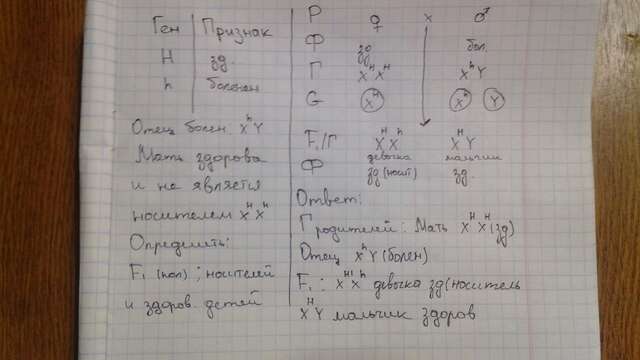 Ген | Признак
H | зд.
h | болен
Отец болен. XʰY
Мать здорова
и не является
носителем XᴴXᴴ
Определить:
F₁ (пол) ; носителей
и здоров. детей
P ♀ x ♂
Ф зд бол.
Г XᴴXᴴ XʰY
G Xᴴ Xʰ Y
F₁/Г XᴴXʰ XᴴY
Ф девочка мальчик
зд (носит) зд.
Ответ:
Г родителей: Мать XᴴXᴴ (зд)
Отец XʰY (болен)
F₁ : XᴴXʰ девочка зд (носитель
XᴴY мальчик здоров